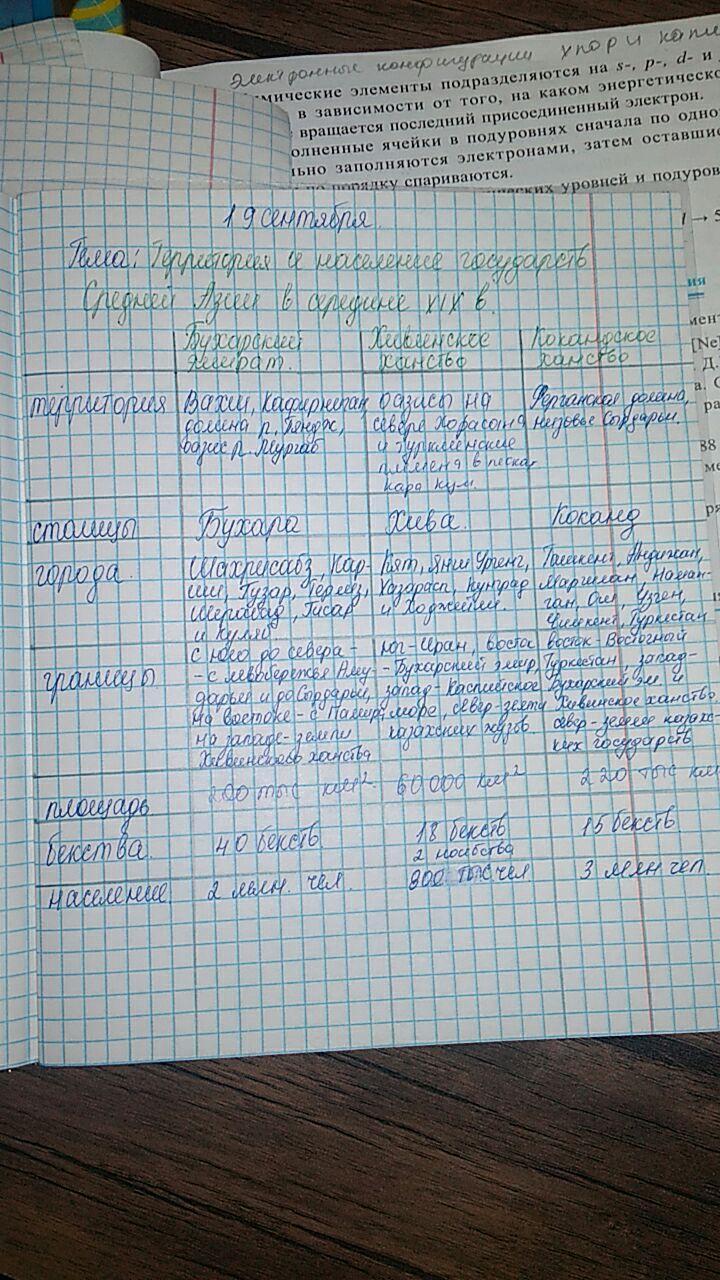 электронные конфигурации
мические элементы подразделяются на s-, p-, d- и
в зависимости от того, на каком энергетическо
вращается последний присоединенный электрон.
олненные ячейки в подуровнях сначала по одно
ьно заполняются электронами, затем оставшие
порядку спариваются.
ических уровней и подуров
→ 5
ия
мент
[Ne]
Д.
а. С
ра
88
ме
ря
19 сентября.
Тема: Территория и население государств
Средней Азии в середине XIX в.
Бухарский эмират. Хивинское ханство Кокандское ханство
территория Вахш, Кафирниган долина р. Пендж, оазис р. Мургаб оазисы на севере Хорасона и туркменские племена в песках кара кум. Ферганская долина, низовье Сырдарьи.
столицы Бухара Хива. Коканд
города. Шахрисабз, Карши, Гузар, Термез, Шерабад, Гисар и Куляб Кят, Янги Ургенч, Хазарасп, Кунград и Ходжейли. Ташкент, Андижан, Маргилан, Наманган, Ош, Узген, Чимкент, Туркестан
границы с юга до севера - с левобережья Амударьи и до Сырдарьи, на востоке - с Памира, на западе - земли Хивинского ханства юг - Иран, восток - Бухарский эмир, запад - Каспийское море, север - земли казахских жузов. восток Восточный Туркестан, запад - Бухарский эм. и Хивинское ханство север - земелое казахских государств
площадь 200 тыс км². 60000 км² 220 тыс км
бекства. 40 бекств 18 бекств 2 ноибства 15 бекств
население 2 млн. чел. 800 тыс чел 3 млн чел.